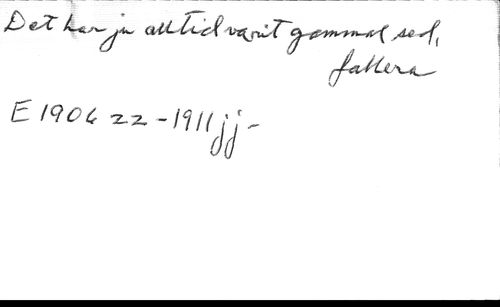 Det har ju alltid varit gammal sed,
fallera
E 1906 zz - 1911 jj -